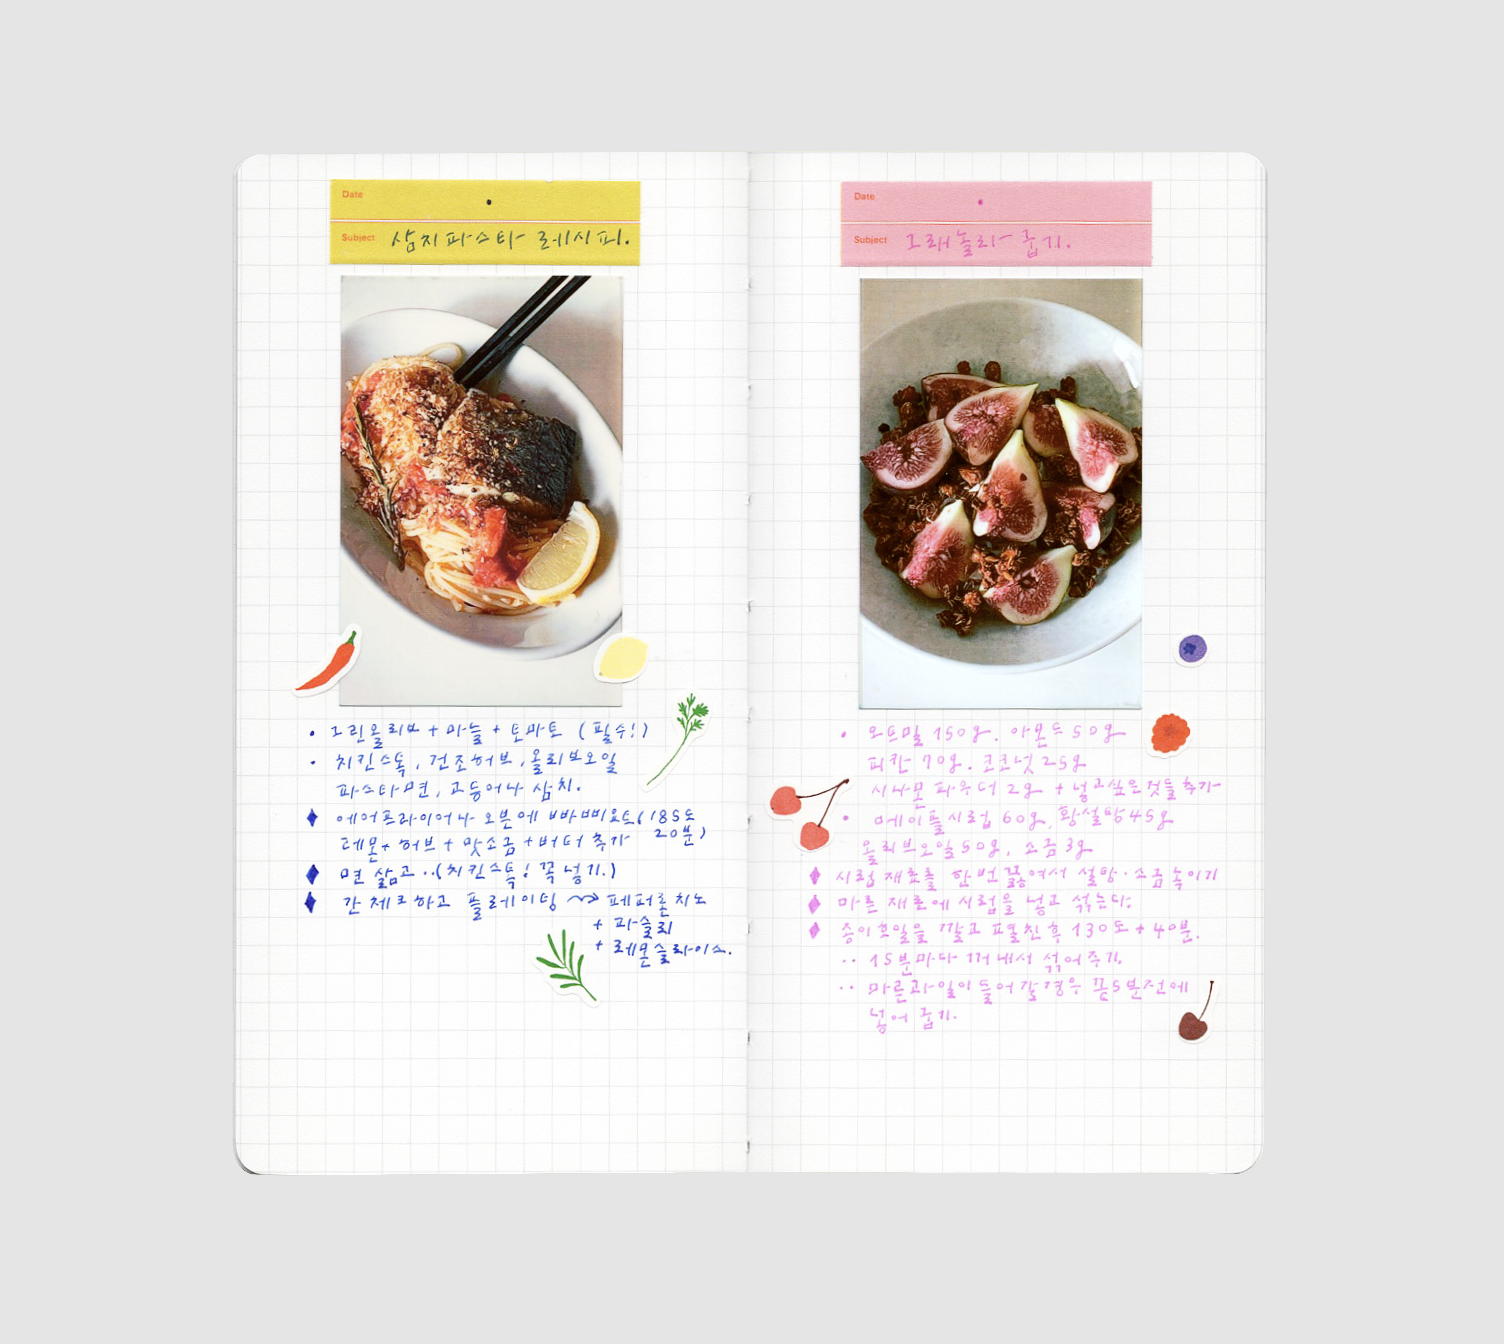 Date
Subject 삼치파스타 레시피.
• 그린올리브 + 마늘 + 토마토 (필수!)
• 치킨스톡, 건조허브, 올리브오일
파스타면, 고등어나 삼치.
에어프라이어나 오븐에 빠삐요트(185도
레몬 + 허브 + 맛소금 + 버터 추가 20분)
면 삶고 ··(치킨스톡! 꼭 넣기.)
간 체크하고 플레이팅 → 페퍼론치노
+ 파슬리
+ 레몬슬라이스.
Date
Subject 그래놀라 굽기.
• 오트밀 150g. 아몬드 50g
피칸 70g. 코코넛 25g
시나몬 파우더 2g + 넣고싶은것들 추가
• 메이플시럽 60g, 황설탕45g
올리브오일50g, 소금 3g
시럽 재료를 한번 끓여서 설탕·소금 녹이기
마른 재료에 시럽을 넣고 섞는다.
종이호일을 깔고 펼친후 130도 + 40분.
·· 15분마다 꺼내서 섞어주기.
·· 마른과일이 들어갈경우 끝5분전에
넣어 굽기.